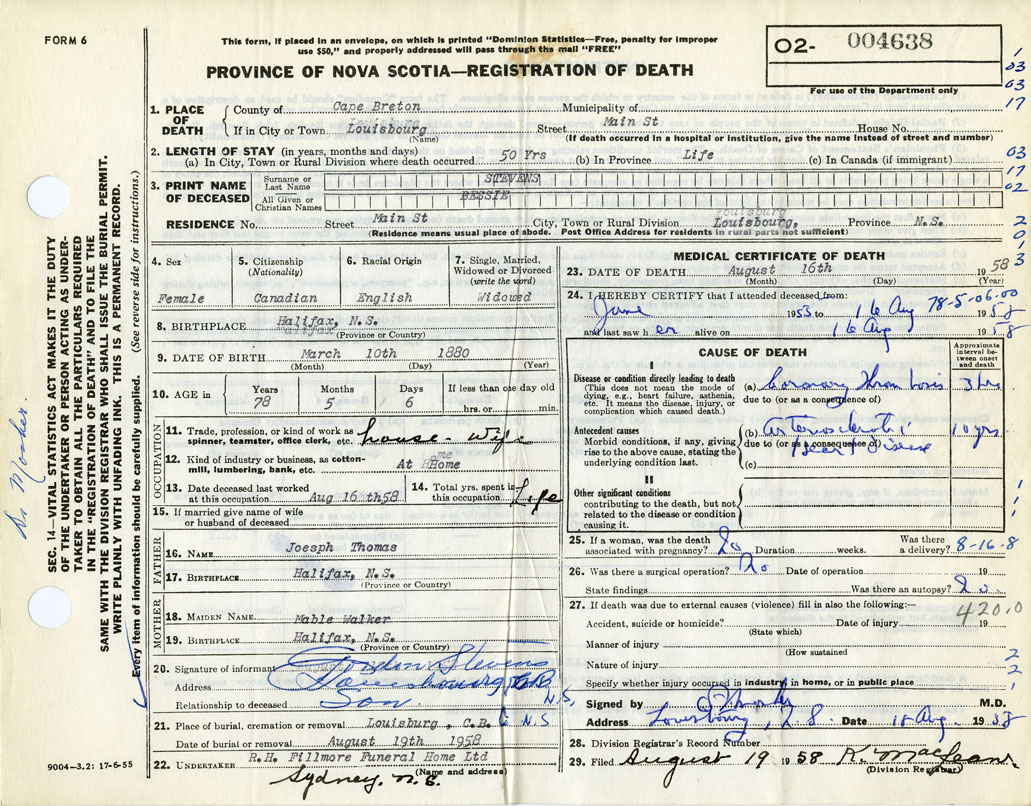 FORM 6
This form, if placed in an envelope, on which is printed "Dominion Statistics—Free, penalty for improper
use $50," and properly addressed will pass through the mail "FREE"
PROVINCE OF NOVA SCOTIA—REGISTRATION OF DEATH
O2- 004638
For use of the Department only
1
03
03
17
03
17
02
2
0
1
3
1. PLACE OF DEATH
County of Cape Breton Municipality of
If in City or Town Louisbourg Street Main St House No.
(Name) (If death occurred in a hospital or institution, give the name instead of street and number)
2. LENGTH OF STAY (in years, months and days)
(a) In City, Town or Rural Division where death occurred 50 Yrs (b) In Province Life (c) In Canada (if immigrant)
3. PRINT NAME OF DECEASED
Surname or Last Name STEVENS
All Given or Christian Names BESSIE
RESIDENCE No. Street Main St City, Town or Rural Division Louisbourg, Province N.S.
(Residence means usual place of abode. Post Office Address for residents in rural parts not sufficient)
4. Sex
Female
5. Citizenship
(Nationality)
Canadian
6. Racial Origin
English
7. Single, Married, Widowed or Divorced
(write the word)
Widowed
8. BIRTHPLACE Halifax, N.S.
(Province or Country)
9. DATE OF BIRTH March 10th 1880
(Month) (Day) (Year)
10. AGE in
Years Months Days If less than one day old
78 5 6 hrs. or min.
OCCUPATION
11. Trade, profession, or kind of work as
spinner, teamster, office clerk, etc. house-wife
12. Kind of industry or business, as cotton-
mill, lumbering, bank, etc. At Home
13. Date deceased last worked
at this occupation Aug 16 th58
14. Total yrs. spent in
this occupation Life
15. If married give name of wife
or husband of deceased
FATHER
16. NAME Joesph Thomas
17. BIRTHPLACE Halifax, N.S.
(Province or Country)
MOTHER
18. MAIDEN NAME Mable Walker
19. BIRTHPLACE Halifax, N.S.
(Province or Country)
20. Signature of informant Gordon Stevens
Address Louisbourg CB N.S,
Relationship to deceased Son
21. Place of burial, cremation or removal Louisburg, C.B. N.S
Date of burial or removal August 19th 1958
22. UNDERTAKER R.H. Fillmore Funeral Home Ltd
(Name and address)
Sydney, N.S.
MEDICAL CERTIFICATE OF DEATH
23. DATE OF DEATH August 16th 1958
(Month) (Day) (Year)
24. I HEREBY CERTIFY that I attended deceased from:
78-5-06.00
June 1953 to 16 Aug 1958
and last saw her alive on 16 Aug 1958
CAUSE OF DEATH
Approximate interval between onset and death
I
Disease or condition directly leading to death
(This does not mean the mode of
dying, e.g., heart failure, asthenia,
etc. It means the disease, injury, or
complication which caused death.)
(a) Coronary Thrombosis 3 hrs
due to (or as a consequence of)
Antecedent causes
Morbid conditions, if any, giving
rise to the above cause, stating the
underlying condition last.
(b) Arteriosclerotic 10 yrs
due to (or as a consequence of)
Heart Disease
(c)
II
Other significant conditions
contributing to the death, but not
related to the disease or condition
causing it.
1
1
1
25. If a woman, was the death
associated with pregnancy? No Duration weeks. Was there
a delivery? 8-16-8
26. Was there a surgical operation? No Date of operation 19
State findings Was there an autopsy? No
27. If death was due to external causes (violence) fill in also the following:— 420.0
Accident, suicide or homicide? Date of injury 19
(State which)
Manner of injury
(How sustained
Nature of injury
Specify whether injury occurred in industry, in home, or in public place
2
2
1
Signed by M.D.
Address Louisbourg, N.S. Date 18 Aug. 1958
28. Division Registrar's Record Number
29. Filed August 19 1958 K. MacLean
(Division Registrar)
SEC. 14—VITAL STATISTICS ACT MAKES IT THE DUTY
OF THE UNDERTAKER OR PERSON ACTING AS UNDER-
TAKER TO OBTAIN ALL THE PARTICULARS REQUIRED
IN THE "REGISTRATION OF DEATH" AND TO FILE THE
SAME WITH THE DIVISION REGISTRAR WHO SHALL ISSUE THE BURIAL PERMIT.
WRITE PLAINLY WITH UNFADING INK. THIS IS A PERMANENT RECORD.
Every item of information should be carefully supplied. (See reverse side for instructions.)
9004—3.2: 17-6-55